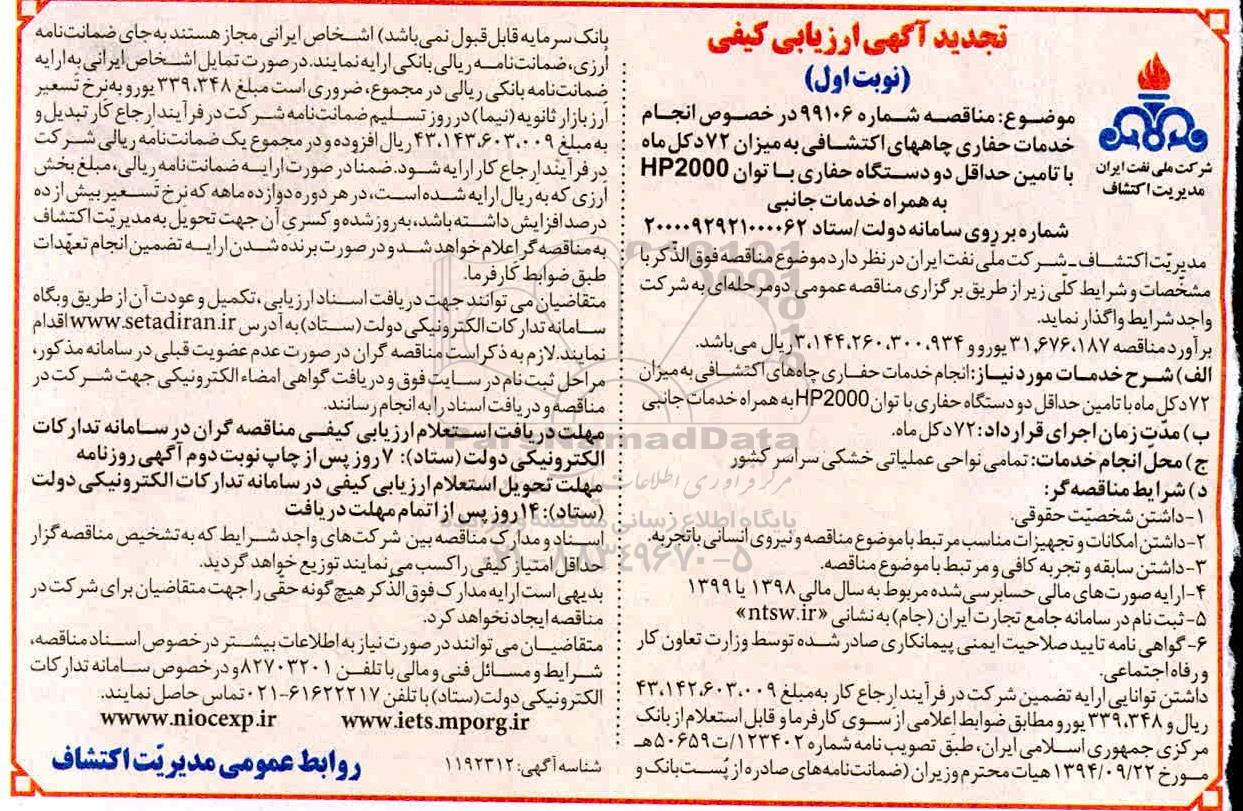 تجدید آگهی ارزیابی کیفی
(نوبت اول)
شرکت ملی نفت ایران
مدیریت اکتشاف
موضوع: مناقصه شماره ۹۹۱۰۶ در خصوص انجام
خدمات حفاری چاههای اکتشافی به میزان ۷۲ دکل ماه
با تامین حداقل دو دستگاه حفاری با توان HP2000
به همراه خدمات جانبی
شماره بر روی سامانه دولت /ستاد ۲۰۰۰۰۹۲۹۲۱۰۰۰۰۶۲
مدیریّت اکتشاف ـ شرکت ملّی نفت ایران در نظر دارد موضوع مناقصه فوق الذّکر با
مشخّصات و شرایط کلّی زیر از طریق برگزاری مناقصه عمومی دومرحله‌ای به شرکت
واجد شرایط واگذار نماید.
برآورد مناقصه ۳۱،۶۷۶،۱۸۷ یورو و ۳،۱۴۴،۲۶۰،۳۰۰،۹۳۴ ریال می‌باشد.
الف) شرح خدمات مورد نیاز: انجام خدمات حفاری چاه‌های اکتشافی به میزان
۷۲ دکل ماه با تامین حداقل دو دستگاه حفاری با توان HP2000 به همراه خدمات جانبی
ب) مدّت زمان اجرای قرارداد: ۷۲ دکل ماه.
ج) محل انجام خدمات: تمامی نواحی عملیاتی خشکی سراسر کشور
د) شرایط مناقصه‌گر:
۱- داشتن شخصیّت حقوقی.
۲- داشتن امکانات و تجهیزات مناسب مرتبط با موضوع مناقصه و نیروی انسانی با تجربه.
۳- داشتن سابقه و تجربه کافی و مرتبط با موضوع مناقصه.
۴- ارایه صورت‌های مالی حسابرسی‌شده مربوط به سال مالی ۱۳۹۸ یا ۱۳۹۹
۵- ثبت نام در سامانه جامع تجارت ایران (جام) به نشانی «ntsw.ir»
۶- گواهی نامه تایید صلاحیت ایمنی پیمانکاری صادر شده توسط وزارت تعاون کار
و رفاه اجتماعی.
داشتن توانایی ارایه تضمین شرکت در فرآیند ارجاع کار به مبلغ ۴۳،۱۴۲،۶۰۳،۰۰۹
ریال و ۳۳۹،۳۴۸ یورو مطابق ضوابط اعلامی از سوی کارفرما و قابل استعلام از بانک
مرکزی جمهوری اسلامی ایران، طبق تصویب نامه شماره ۱۲۳۴۰۲/ت۵۰۶۵۹هـ
مورخ ۱۳۹۴/۰۹/۲۲ هیات محترم وزیران (ضمانت‌نامه‌های صادره از پُست‌بانک و
بانک سرمایه قابل قبول نمی‌باشد) اشخاص ایرانی مجاز هستند به جای ضمانت‌نامه
ارزی، ضمانت‌نامه ریالی بانکی ارایه نمایند. در صورت تمایل اشخاص ایرانی به ارایه
ضمانت‌نامه بانکی ریالی در مجموع، ضروری است مبلغ ۳۳۹،۳۴۸ یورو به نرخ تسعیر
ارز بازار ثانویه (نیما) در روز تسلیم ضمانت‌نامه شرکت در فرآیند ارجاع کار تبدیل و
به مبلغ ۴۳،۱۴۳،۶۰۳،۰۰۹ ریال افزوده و در مجموع یک ضمانت‌نامه ریالی شرکت
در فرآیند ارجاع کار ارایه شود. ضمنا در صورت ارایه ضمانت‌نامه ریالی، مبلغ بخش
ارزی که به ریال ارایه شده است، در هر دوره دوازده ماهه که نرخ تسعیر بیش از ده
درصد افزایش داشته باشد، به روز شده و کسری آن جهت تحویل به مدیریّت اکتشاف
به مناقصه گر اعلام خواهد شد و در صورت برنده شدن ارایه تضمین انجام تعهّدات
طبق ضوابط کارفرما.
متقاضیان می توانند جهت دریافت اسناد ارزیابی ، تکمیل و عودت آن از طریق وبگاه
سامانه تدارکات الکترونیکی دولت (ستاد) به آدرس www.setadiran.ir اقدام
نمایند. لازم به ذکر است مناقصه گران در صورت عدم عضویت قبلی در سامانه مذکور،
مراحل ثبت نام در سایت فوق و دریافت گواهی امضاء الکترونیکی جهت شرکت در
مناقصه و دریافت اسناد را به انجام رسانند.
مهلت دریافت استعلام ارزیابی کیفی مناقصه گران در سامانه تدارکات
الکترونیکی دولت (ستاد): ۷ روز پس از چاپ نوبت دوم آگهی روزنامه
مهلت تحویل استعلام ارزیابی کیفی در سامانه تدارکات الکترونیکی دولت
(ستاد): ۱۴ روز پس از اتمام مهلت دریافت
اسناد و مدارک مناقصه بین شرکت‌های واجد شرایط که به تشخیص مناقصه گزار
حداقل امتیاز کیفی را کسب می نمایند توزیع خواهد گردید.
بدیهی است ارایه مدارک فوق الذّکر هیچ گونه حقّی را جهت متقاضیان برای شرکت در
مناقصه ایجاد نخواهد کرد.
متقاضیان می توانند در صورت نیاز به اطلاعات بیشتر در خصوص اسناد مناقصه،
شرایط و مسائل فنی و مالی با تلفن ۸۲۷۰۳۲۰۱ و در خصوص سامانه تدارکات
الکترونیکی دولت (ستاد) با تلفن ۶۱۶۲۲۲۱۷-۰۲۱ تماس حاصل نمایند.
www.iets.mporg.ir wwww.niocexp.ir
شناسه آگهی: ۱۱۹۲۳۱۲
روابط عمومی مدیریّت اکتشاف
ParsNamadData
مرکز فرآوری اطلاعات
پایگاه اطلاع رسانی مناقصه و مزایده
۰۲۱-۸۸۳۴۹۶۷۰-۵